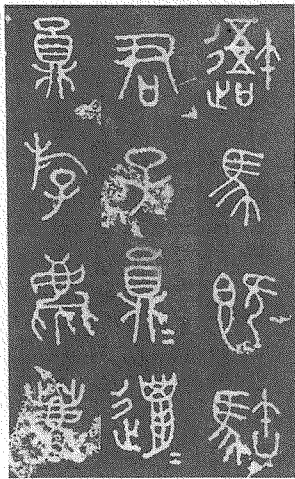 避馬既駐
君子員=邋=
員斿麀鹿